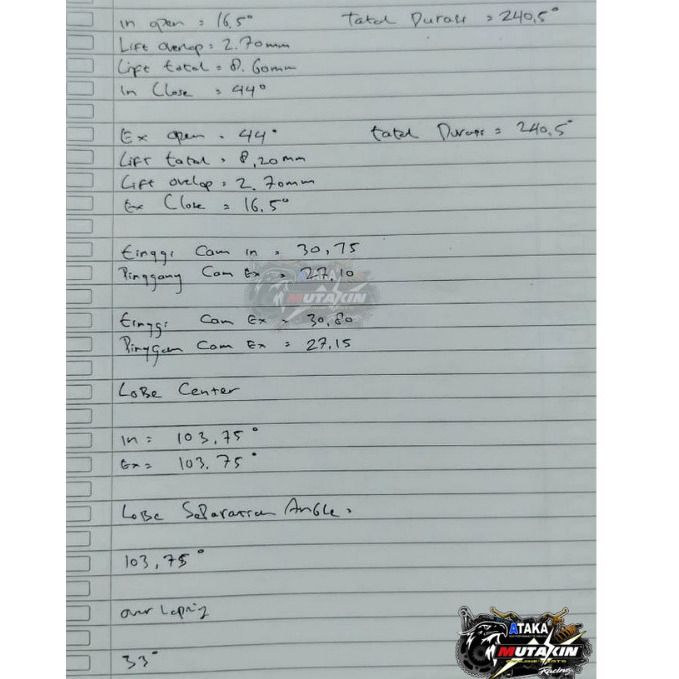 In open = 16,5° Total Durasi = 240,5°
Lift overlap = 2.70mm
Lift total = 8.60mm
In Close = 44°
Ex open = 44° total Durasi = 240,5°
Lift total = 8,20mm
Lift ovelop = 2.70mm
Ex Close = 16,5°
Tinggi Cam in = 30,75
Pinggang Cam Ex = 27,10
ATAKA
MUTAKIN
Tinggi Cam Ex = 30,80
Pinggan Cam Ex = 27,15
LoBe Center
In = 103,75°
Ex = 103,75°
LoBe Separation Angle =
103,75°
over laping
33°
ATAKA
MUTAKIN
Racing